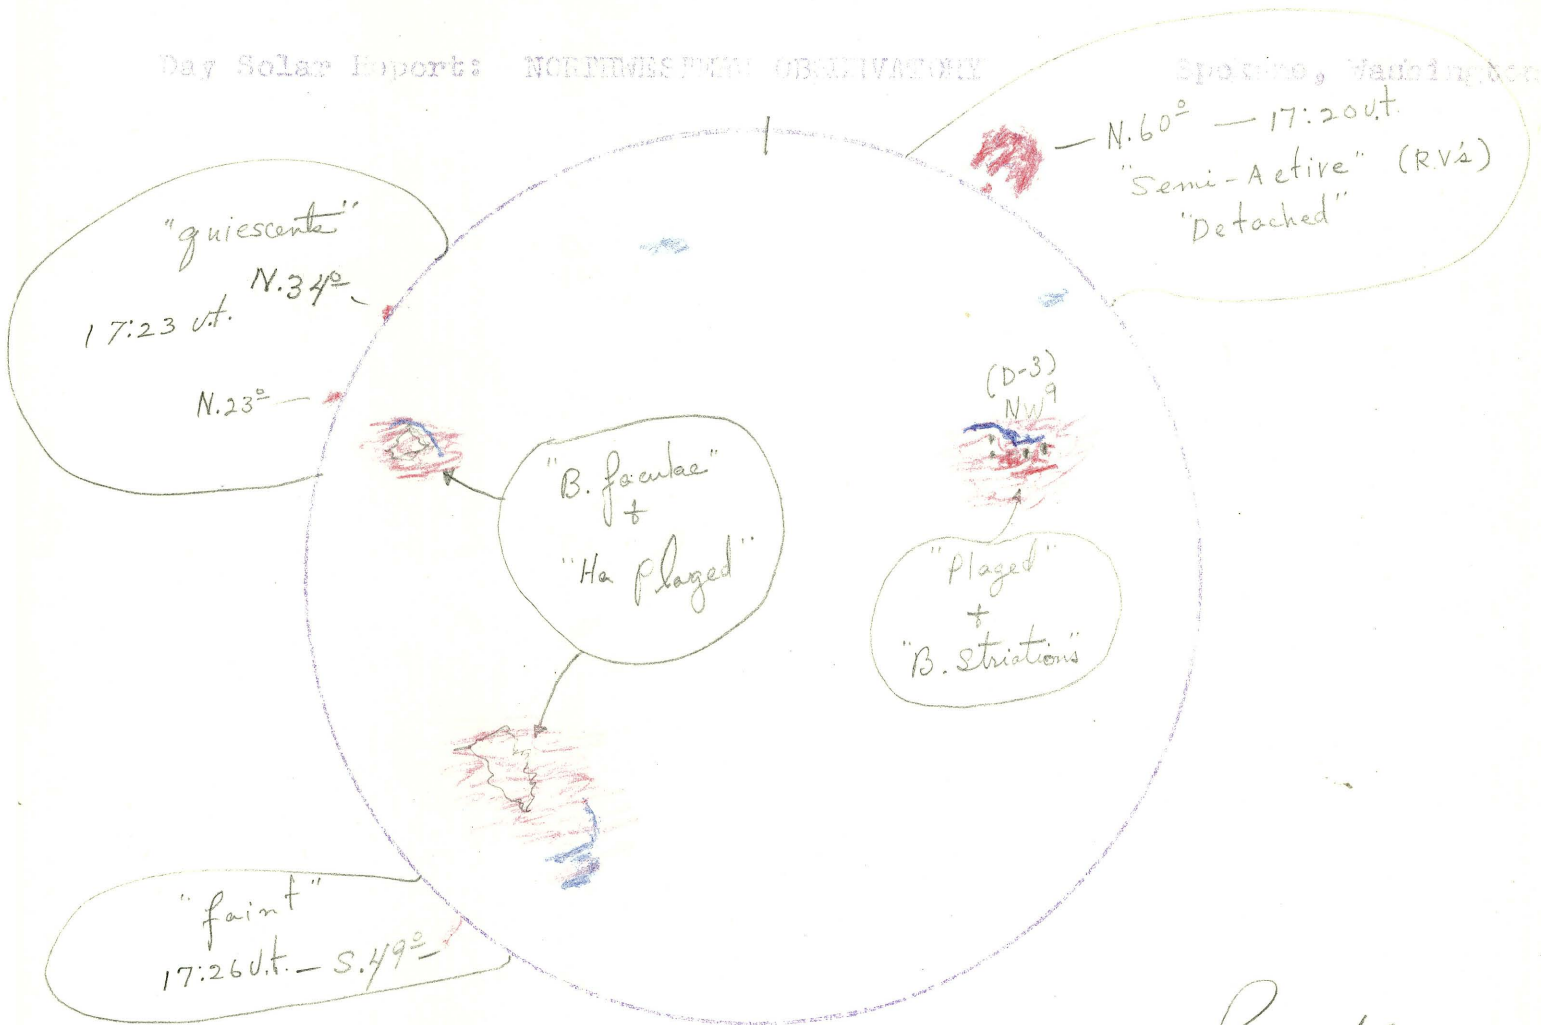 Day Solar Report: NORTHWESTERN OBSERVATORY Spokane, Washington
N.60° — 17:20 U.t.
"Semi-Active" (R.V's)
"Detached"
"quiescents"
N.34°
17:23 U.t.
N.23° —
(D-3)
NW 9
"B. faculae"
+
"Ha plaged"
"Plaged"
+
"B. Striations"
"faint"
17:26 U.t. — S.49° —